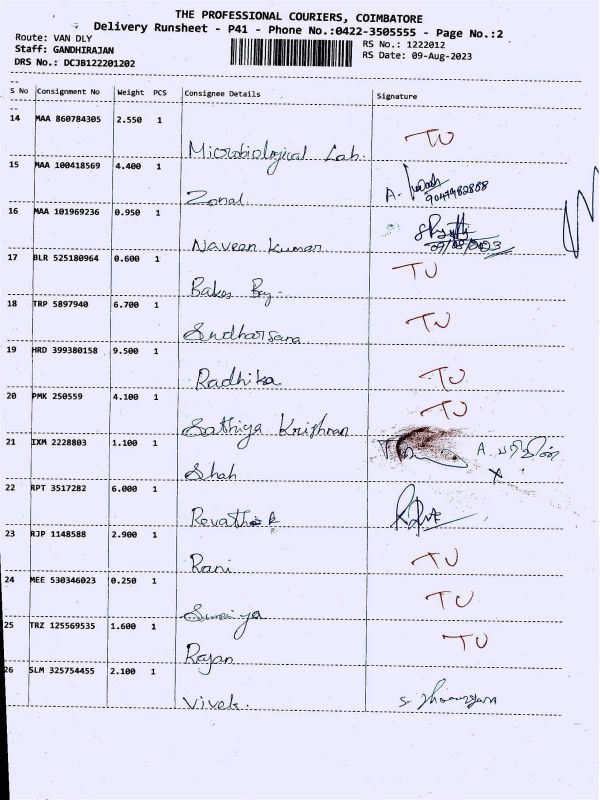 THE PROFESSIONAL COURIERS, COIMBATORE
Delivery Runsheet - P41 - Phone No.:0422-3505555 - Page No.:2
Route: VAN DLY RS No.: 1222012
Staff: GANDHIRAJAN RS Date: 09-Aug-2023
DRS No.: DCJB122201202
S No Consignment No Weight PCS Consignee Details Signature
14 MAA 860784305 2.550 1
Microbiological Lab. TU
15 MAA 100418569 4.400 1
Zonal A. 9047982888
16 MAA 101969236 0.950 1
Naveen Kumar 09/08/2023
17 BLR 525180964 0.600 1 TU
Bakes Bay-
18 TRP 5897940 6.700 1 TU
Sudharsana
19 HRD 399380158 9.500 1
Radhika TU
20 PMK 250559 4.100 1 TU
Sathiya Krishnan
21 IXM 2228803 1.100 1 A.
Shah X
22 RPT 3517282 6.000 1
Revathi K
23 RJP 1148588 2.900 1
Rani TU
24 MEE 530346023 0.250 1 TU
Suraiya
25 TRZ 125569535 1.600 1 TU
Rajan
26 SLM 325754455 2.100 1
Vivek. S.